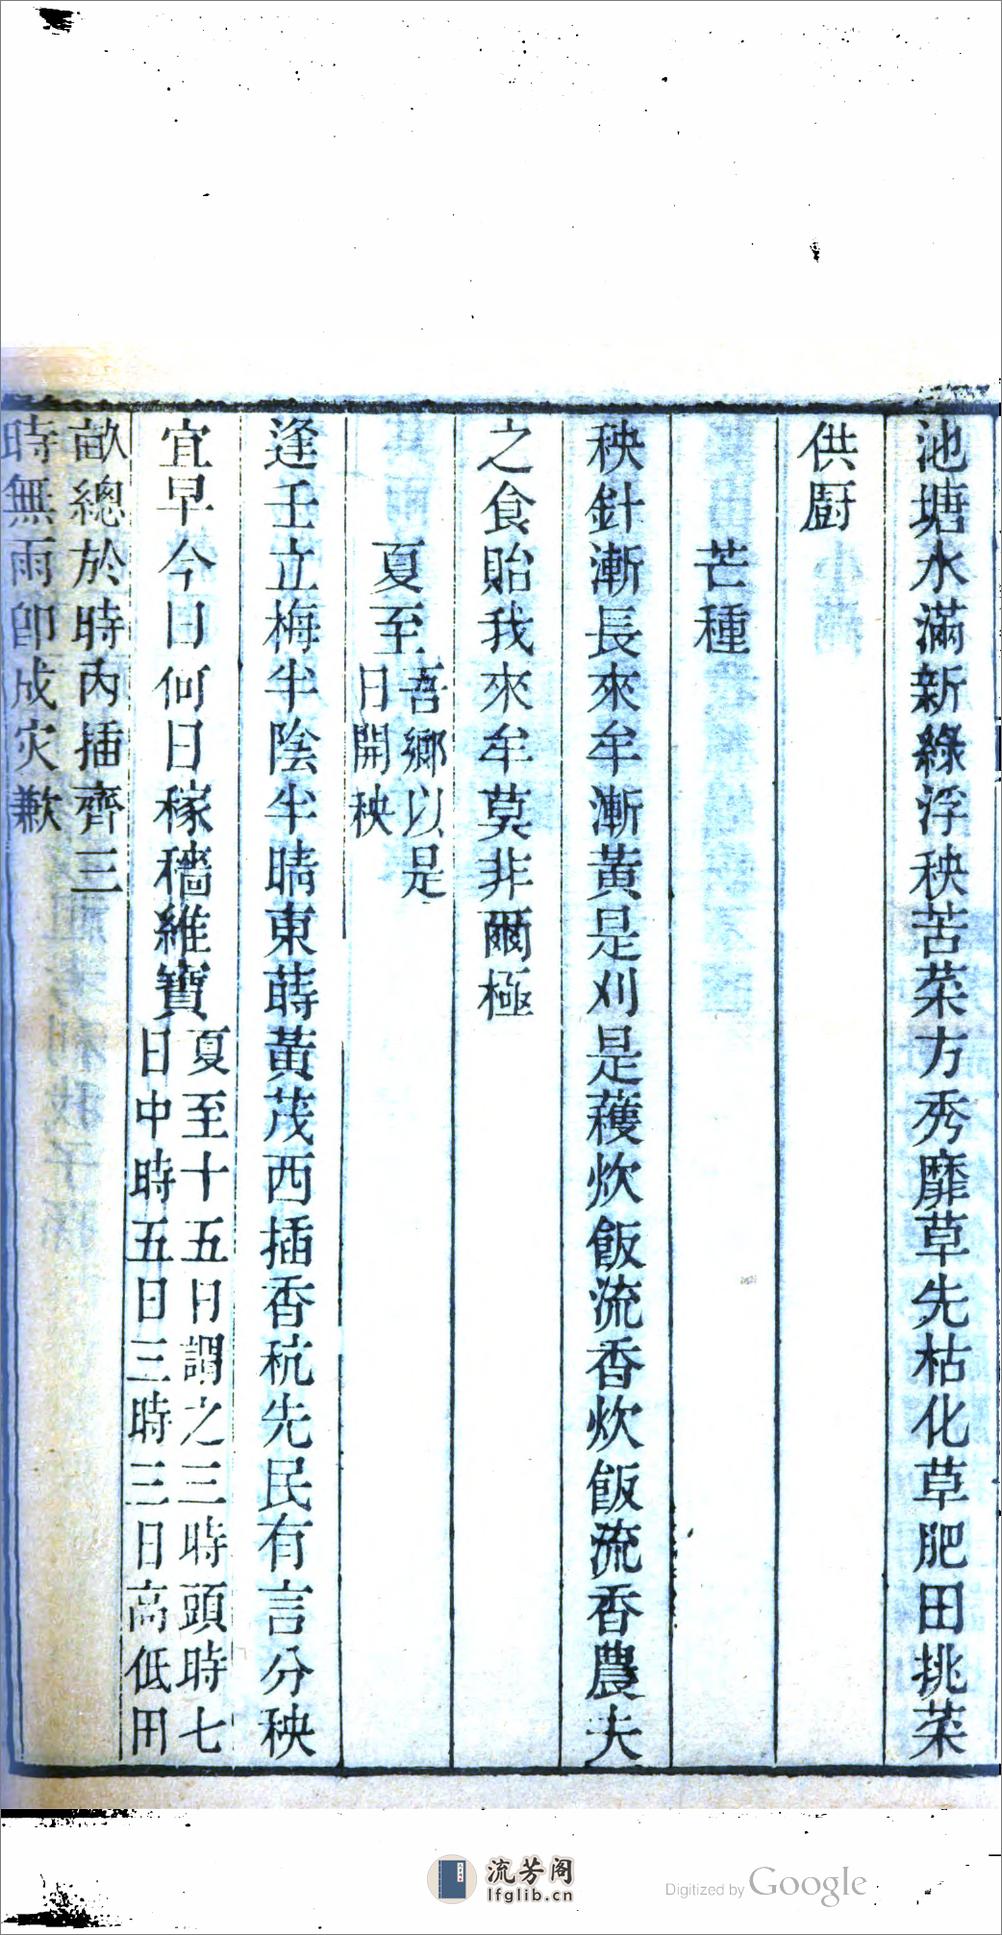 池塘水滿新綠浮秧苦菜方秀靡草先枯化草肥田挑菜
供厨
芒種
秧針漸長來牟漸黃是刈是穫炊飯流香炊飯流香農夫
之食貽我來牟莫非爾極
夏至
吾鄉以是
日開秧
逢壬立梅半陰半晴東蒔黃茂西插香秔先民有言分秧
宜早今日何日稼穡維寶
夏至十五日謂之三時頭時七
日中時五日三時三日高低田
畝總於時內插齊三
時無雨卽成灾歉
流芳阁
lfglib.cn
Digitized by Google